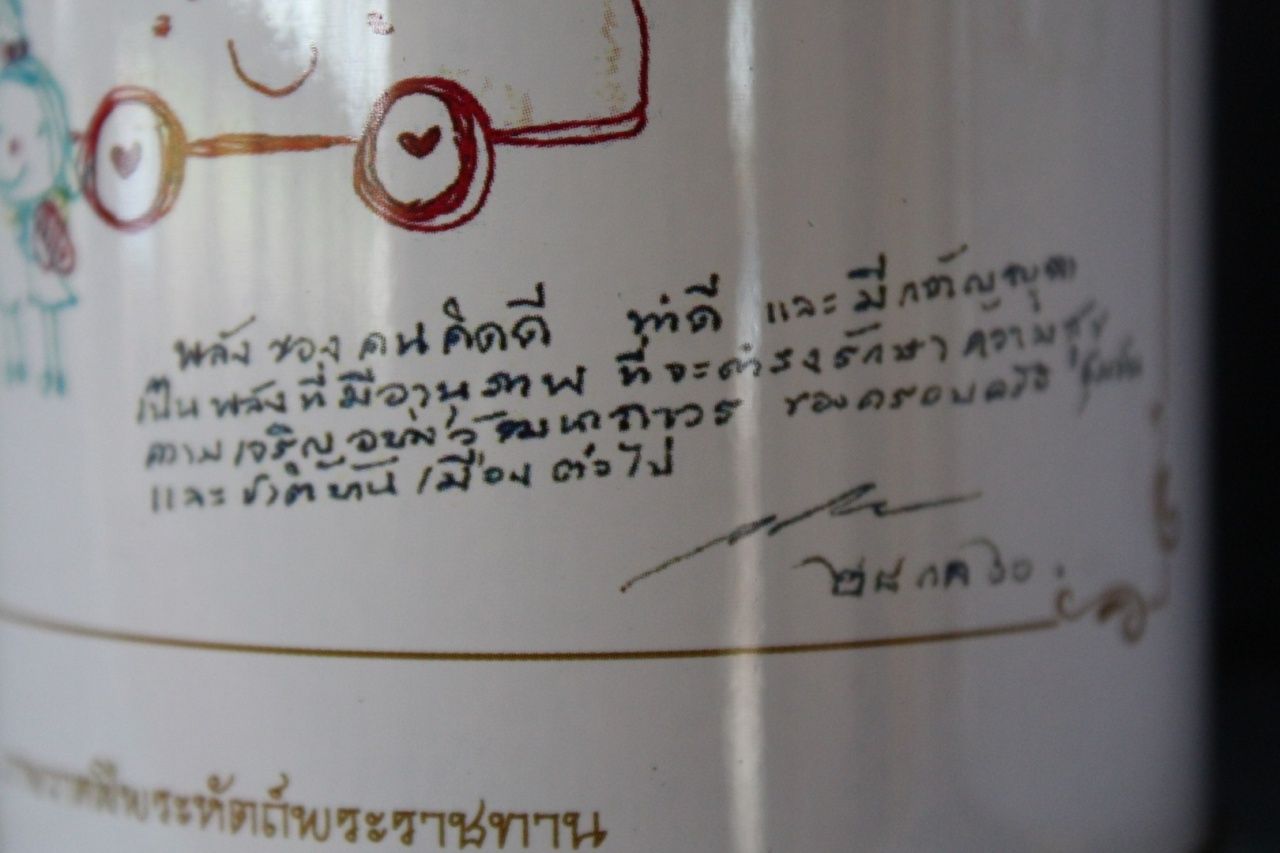 พลังของคนคิดดี ทำดี และมีกตัญญุตา
เป็นพลังที่มีอานุภาพ ที่จะดำรงรักษาความสุข
ความเจริญอย่างวัฒนาถาวร ของครอบครัว ชุมชน
และชาติบ้านเมืองต่อไป
๒๘ กค ๖๐
ฝีพระหัตถ์พระราชทาน